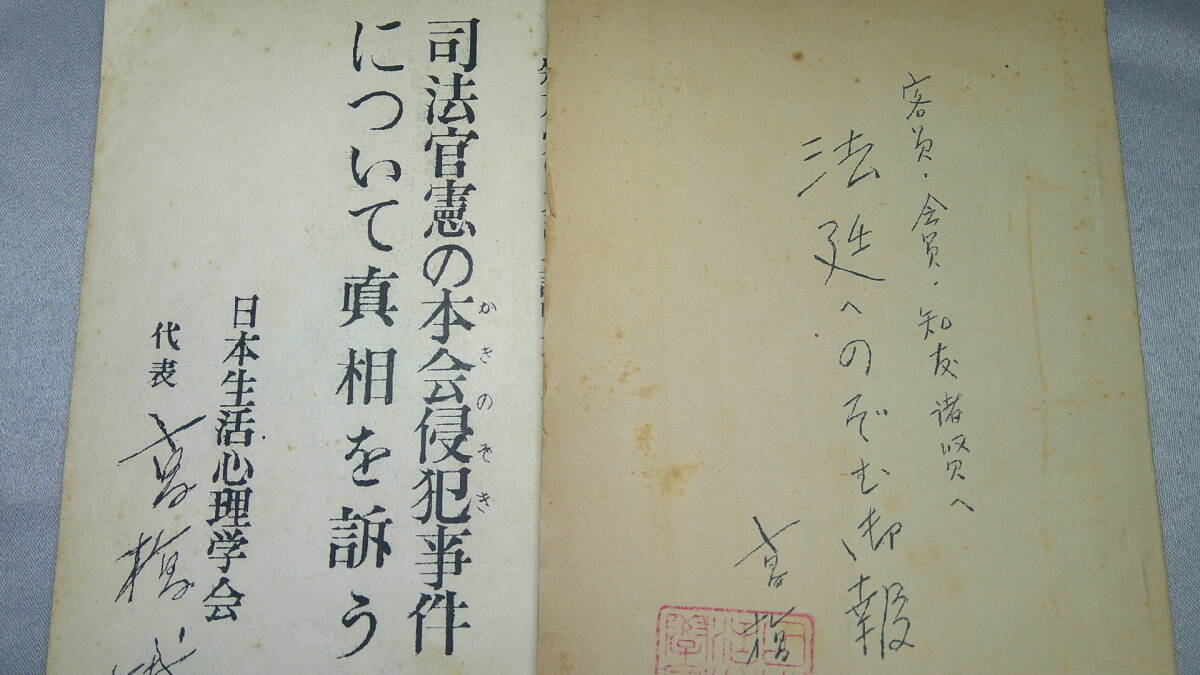 客員・会員・知友諸賢へ
法廷へのぞむ御報
高橋
司法官憲の本会侵犯事件
かきのぞき
について真相を訴う
日本生活心理学会
代表 高橋